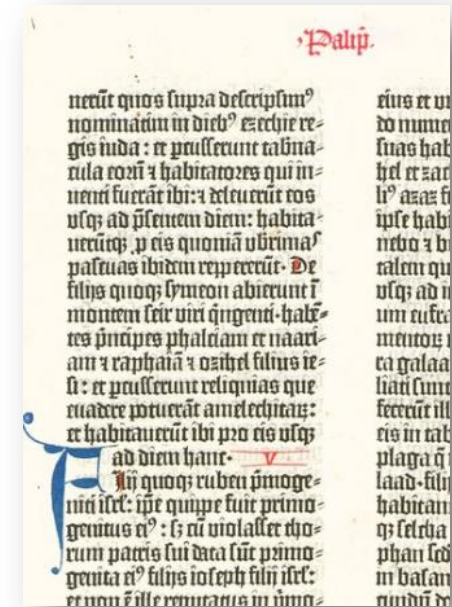 Palip̄.
nerūt quos supra descripsimꝰ
nominatim in diebꝰ ezechie re⸗
gis iuda : et pcusserunt tab̄na⸗
cula eorū ⁊ habitatores qui in⸗
uenti fuerāt ibi:⁊ deleuerūt eos
vsqꝫ ad p̄sentem diem: habita⸗
uerūtqꝫ p eis quoniā vbrimas
pascuas ibidem reppererūt· De
filijs quoqꝫ symeon abierunt ī
montem seir viri q̄ngenti·habē⸗
tes p̄ncipes phalciam et naari⸗
am ⁊ raphaiā ⁊ ozihel filius ie⸗
si : et pcusserunt reliquias que
euadere potuerāt amelechitaꝝ:
et habitauerūt ibi pro eis vsqꝫ
ad diem hanc· V
Filij quoqꝫ ruben p̄moge⸗
niti isrl̄: ip̄e quippe fuit primo⸗
genitus eiꝰ : sꝫ cū violasset tho⸗
rum patris sui data sūt primo⸗
genita eiꝰ filijs ioseph filij isrl̄:
et non ē ille reputatus in p̄mo⸗
eius et
do nume
suas hab
hel et zac
liꝰ azaz f
ipse habi
nebo ⁊ b
talem qu
vsqꝫ ad i
um eufra
mentoꝝ
ra galaa
liati sunt
fecerūt ill
eis in tab
plaga q̄
laad·filij
habitan
qꝫ selcha
phan
in basan